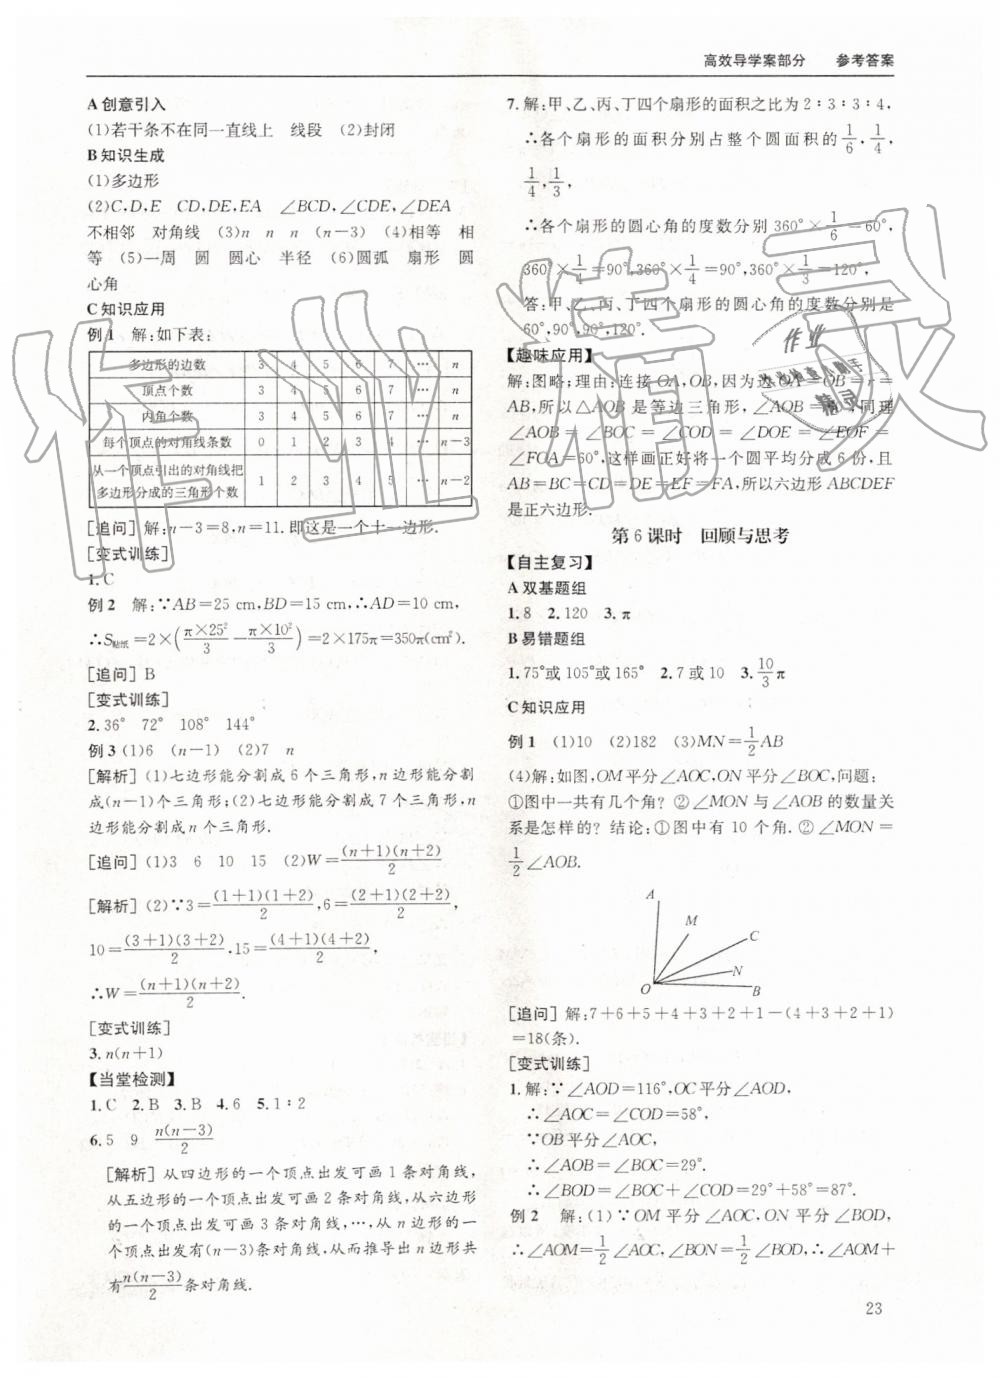 高效导学案部分 参考答案
A 创意引入
(1)若干条不在同一直线上 线段 (2)封闭
B 知识生成
(1)多边形
(2)C,D,E CD,DE,EA ∠BCD,∠CDE,∠DEA
不相邻 对角线 (3)n n n (n-3) (4)相等 相
等 (5)一周 圆 圆心 半径 (6)圆弧 扇形 圆
心角
C 知识应用
例 1 解:如下表:
多边形的边数 3 4 5 6 7 … n
顶点个数 3 4 5 6 7 … n
内角个数 3 4 5 6 7 … n
每个顶点的对角线条数 0 1 2 3 4 … n-3
从一个顶点引出的对角线把
多边形分成的三角形个数 1 2 3 4 5 … n-2
[追问] 解:n-3=8,n=11.即这是一个十一边形.
[变式训练]
1.C
例 2 解:∵AB=25 cm,BD=15 cm,∴AD=10 cm,
∴S贴纸=2×(π×25²/3-π×10²/3)=2×175π=350π(cm²).
[追问] B
[变式训练]
2.36° 72° 108° 144°
例 3 (1)6 (n-1) (2)7 n
[解析] (1)七边形能分割成 6 个三角形,n 边形能分割
成(n-1)个三角形;(2)七边形能分割成 7 个三角形,n
边形能分割成 n 个三角形.
[追问] (1)3 6 10 15 (2)W=(n+1)(n+2)/2
[解析] (2)∵3=(1+1)(1+2)/2,6=(2+1)(2+2)/2,
10=(3+1)(3+2)/2.15=(4+1)(4+2)/2,
∴W=(n+1)(n+2)/2.
[变式训练]
3.n(n+1)
【当堂检测】
1.C 2.B 3.B 4.6 5.1∶2
6.5 9 n(n-3)/2
[解析] 从四边形的一个顶点出发可画 1 条对角线,
从五边形的一个顶点出发可画 2 条对角线,从六边形
的一个顶点出发可画 3 条对角线,…,从 n 边形的一
个顶点出发有(n-3)条对角线,从而推导出 n 边形共
有n(n-3)/2条对角线.
7.解:甲、乙、丙、丁四个扇形的面积之比为 2∶3∶3∶4,
∴各个扇形的面积分别占整个圆面积的1/6,1/4,
1/4,1/3,
∴各个扇形的圆心角的度数分别 360°×1/6=60°,
360°×1/4=90°,360°×1/4=90°,360°×1/3=120°,
答:甲、乙、丙、丁四个扇形的圆心角的度数分别是
60°,90°,90°,120°.
【趣味应用】
解:图略;理由:连接 OA,OB,因为边 OA=OB=r=
AB,所以△AOB 是等边三角形,∠AOB= ,同理
∠AOB=∠BOC=∠COD=∠DOE=∠EOF=
∠FOA=60°,这样画正好将一个圆平均分成 6 份,且
AB=BC=CD=DE=EF=FA,所以六边形 ABCDEF
是正六边形.
第 6 课时 回顾与思考
【自主复习】
A 双基题组
1.8 2.120 3.π
B 易错题组
1.75°或 105°或 165° 2.7 或 10 3.10/3π
C 知识应用
例 1 (1)10 (2)182 (3)MN=1/2AB
(4)解:如图,OM 平分∠AOC,ON 平分∠BOC,问题:
①图中一共有几个角? ②∠MON 与∠AOB 的数量关
系是怎样的? 结论:①图中有 10 个角.②∠MON=
1/2∠AOB.
A
M
C
N
O
B
[追问] 解:7+6+5+4+3+2+1-(4+3+2+1)
=18(条).
[变式训练]
1.解:∵∠AOD=116°,OC 平分∠AOD,
∴∠AOC=∠COD=58°,
∵OB 平分∠AOC,
∴∠AOB=∠BOC=29°.
∴∠BOD=∠BOC+∠COD=29°+58°=87°.
例 2 解:(1)∵OM 平分∠AOC,ON 平分∠BOD,
∴∠AOM=1/2∠AOC,∠BON=1/2∠BOD,∴∠AOM+
23
作业精灵
作业
精灵